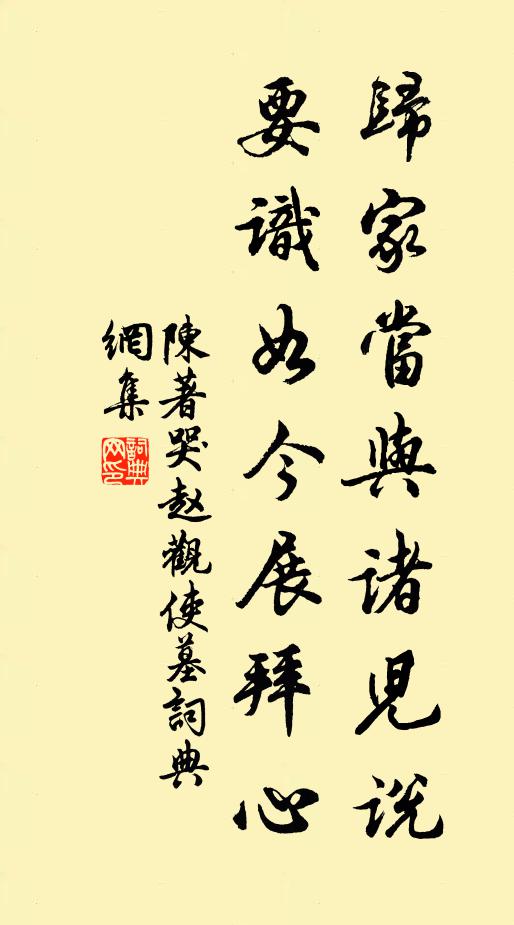 歸家當與諸兒說
要識如今展拜心
陳著哭赵觀使墓詞典
網集
詞典
网印